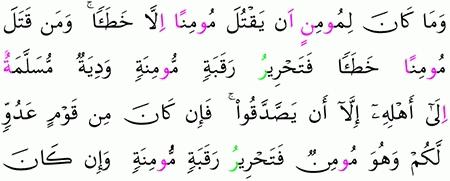 وَمَا كَانَ لِمُومِنٍ اَن يَقْتُلَ مُومِنًا اِلَّا خَطَـًٔا ۚ وَمَن قَتَلَ
مُومِنًا خَطَـًٔا فَتَحْرِيرُ رَقَبَةٍ مُّومِنَةٍ وَدِيَةٌ مُّسَلَّمَةٌ
اِلَىٰٓ أَهْلِهِۦٓ إِلَّآ أَن يَصَّدَّقُوا۟ ۚ فَإِن كَانَ مِن قَوْمٍ عَدُوٍّ
لَّكُمْ وَهُوَ مُومِنٌ فَتَحْرِيرُ رَقَبَةٍ مُّومِنَةٍ وَإِن كَانَ